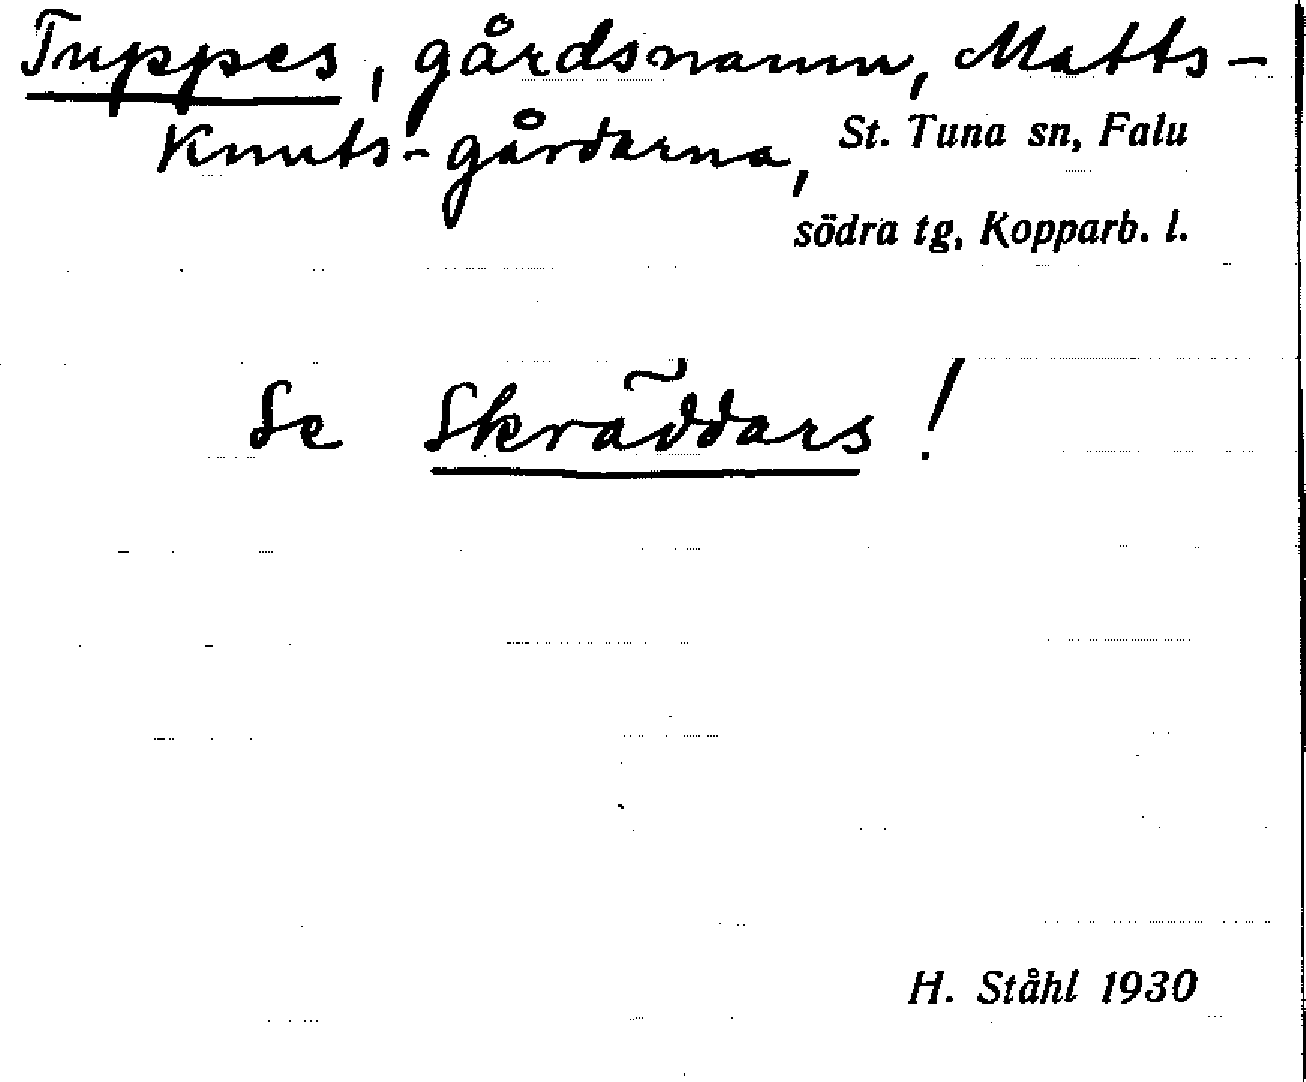 Tuppes, gårdsnamn, Matts-
Knuts-gårdarna, St. Tuna sn, Falu
södra tg, Kopparb. l.
Se Skräddars!
H. Ståhl 1930